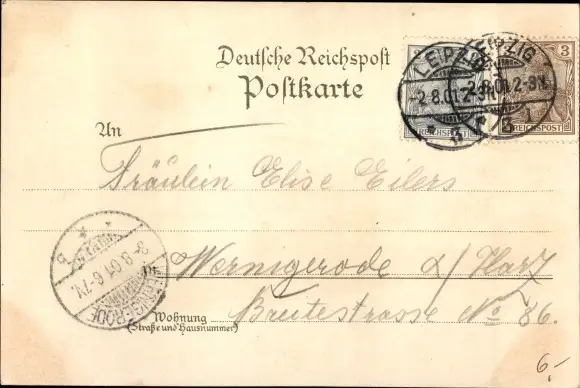 Deutsche Reichspost
Postkarte
LEIPZIG
LEIPZIG
-2.8.01.2-3N.
2.8.01.2-3N.
3
REICHSPOST
REICHSPOST
An
Fräulein Elise Eilers
3.8.01.6-7V.
WERNIGERODE
in
Wernigerode a/Harz
Wohnung
(Straße und Hausnummer)
Breitestrasse No 86.
6,-